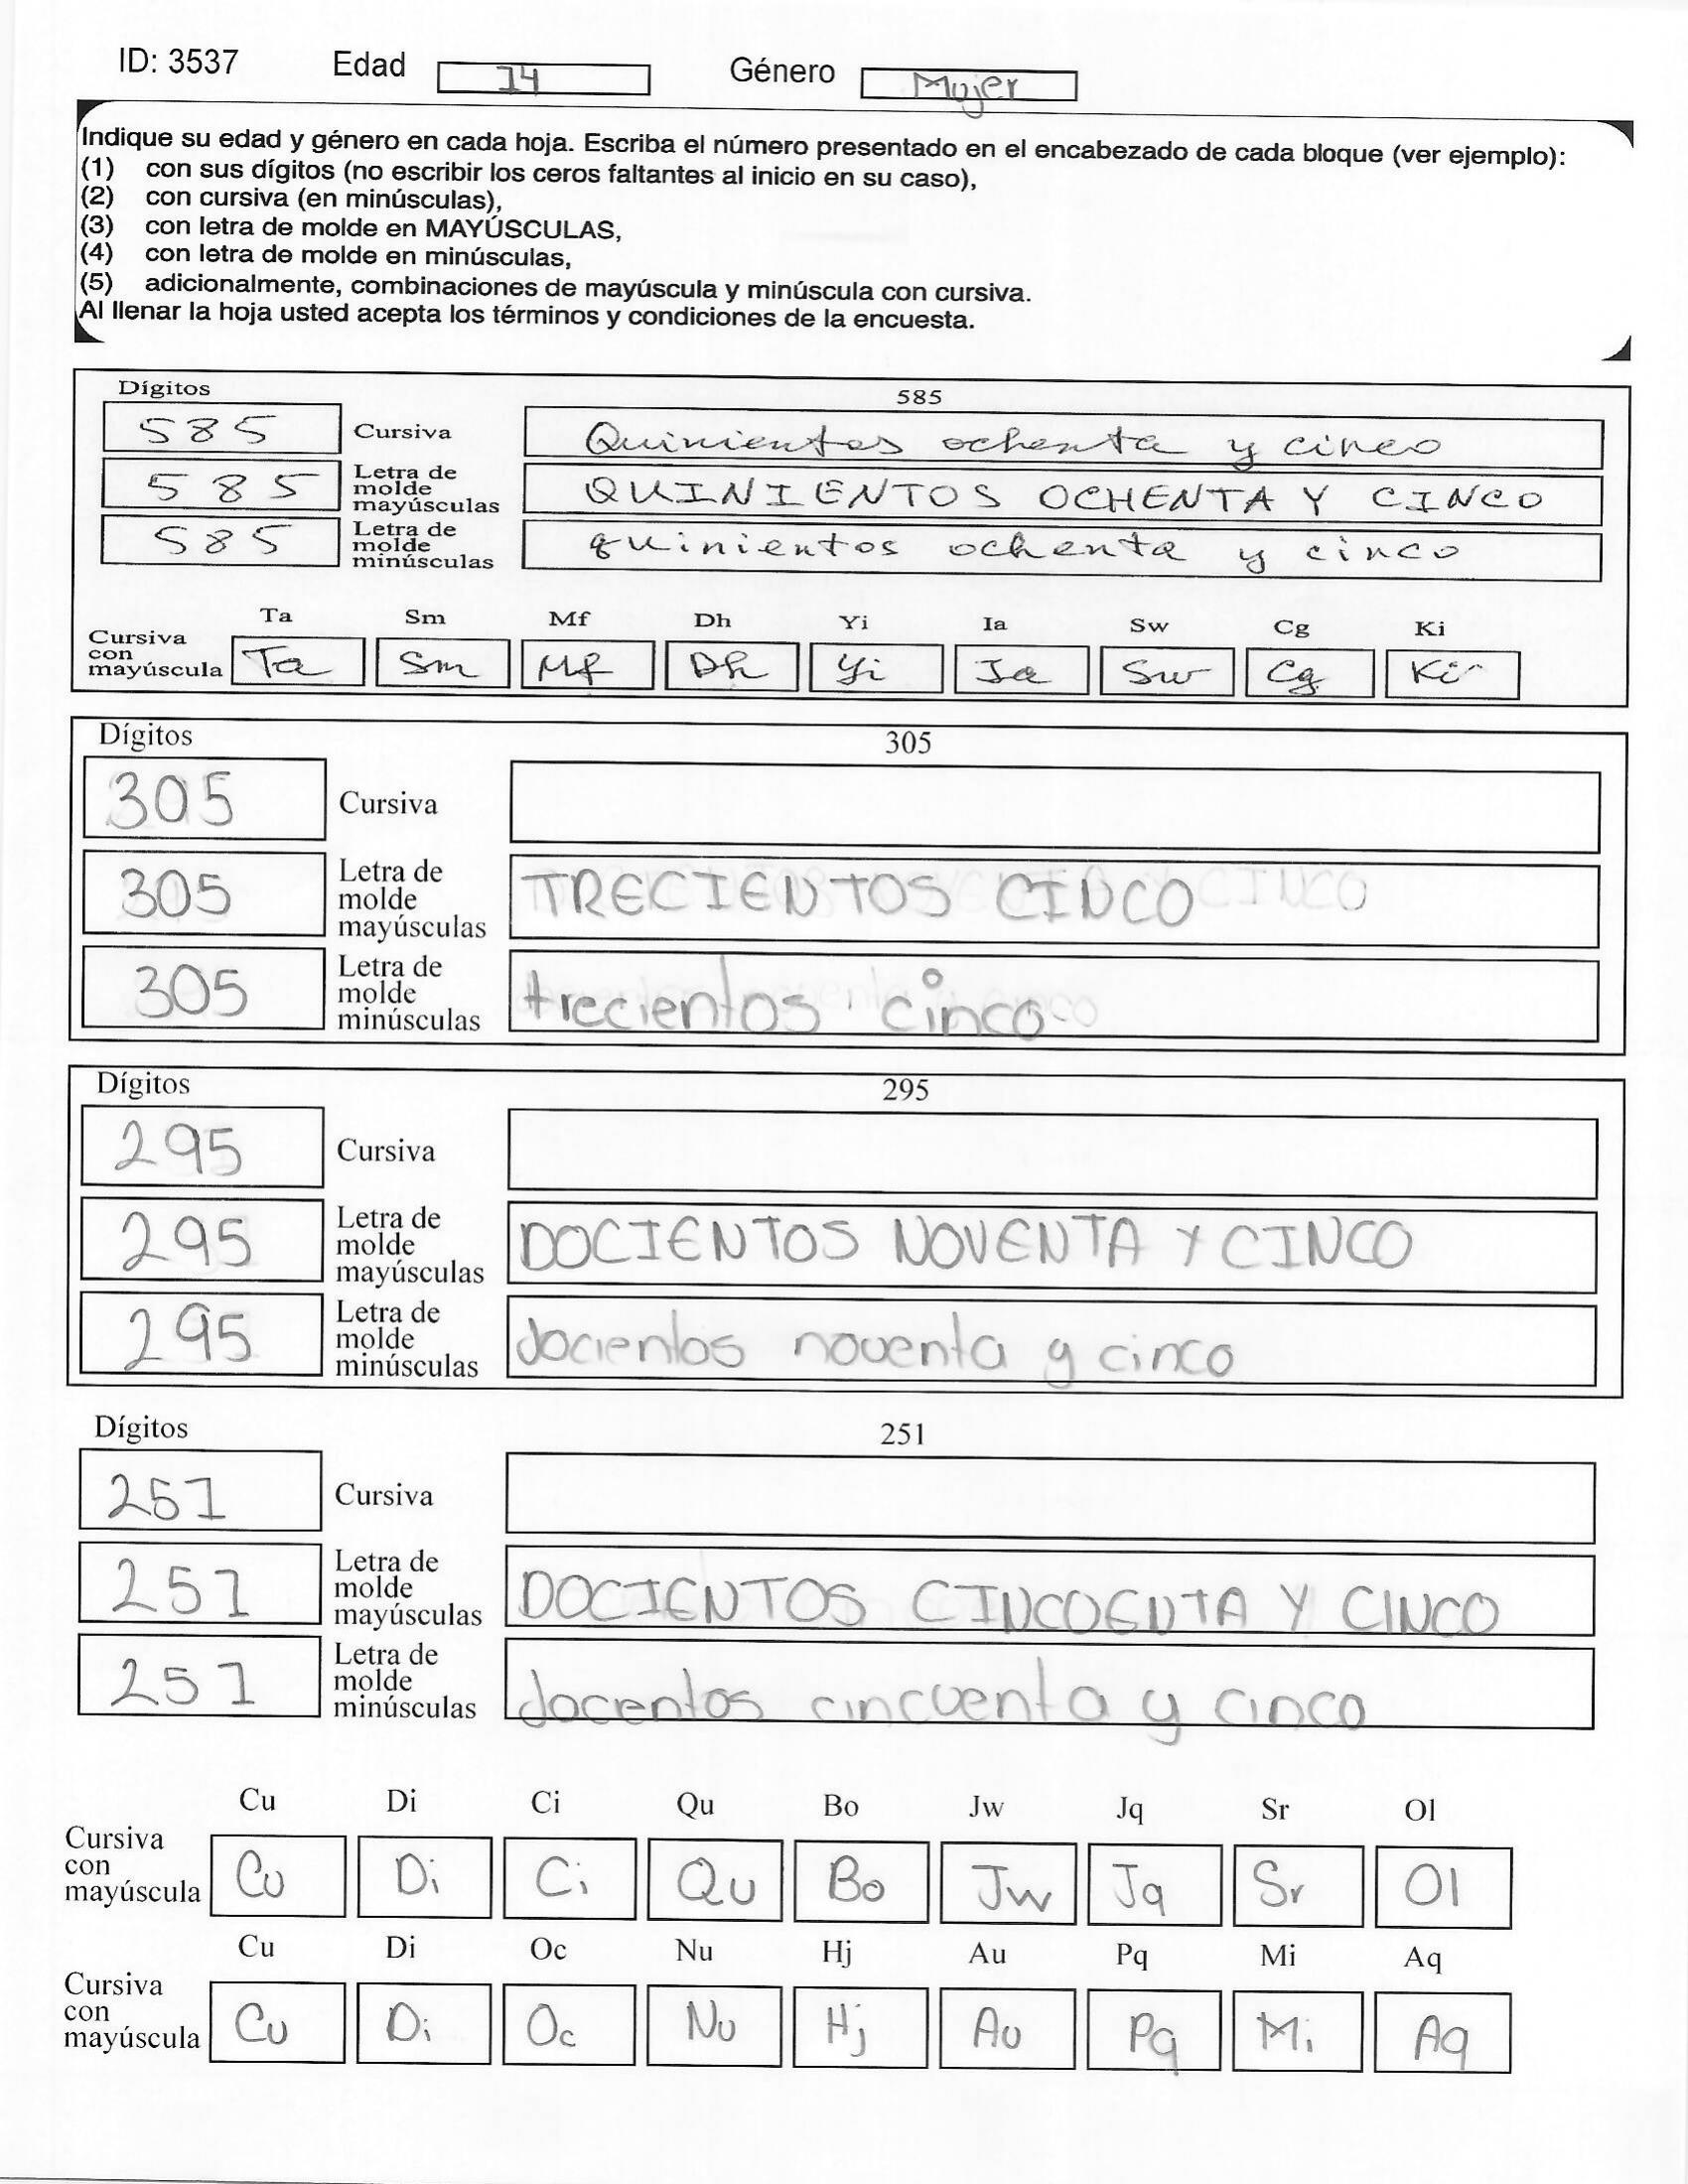 ID: 3537 Edad 14 Género Mujer
Indique su edad y género en cada hoja. Escriba el número presentado en el encabezado de cada bloque (ver ejemplo):
(1) con sus dígitos (no escribir los ceros faltantes al inicio en su caso),
(2) con cursiva (en minúsculas),
(3) con letra de molde en MAYÚSCULAS,
(4) con letra de molde en minúsculas,
(5) adicionalmente, combinaciones de mayúscula y minúscula con cursiva.
Al llenar la hoja usted acepta los términos y condiciones de la encuesta.
Dígitos 585
585 Cursiva Quinientos ochenta y cinco
585 Letra de molde mayúsculas QUINIENTOS OCHENTA Y CINCO
585 Letra de molde minúsculas quinientos ochenta y cinco
Ta Sm Mf Dh Yi Ia Sw Cg Ki
Cursiva con mayúscula Ta Sm Mf Dh Yi Ia Sw Cg Ki
Dígitos 305
305 Cursiva
305 Letra de molde mayúsculas TRECIENTOS CINCO
305 Letra de molde minúsculas trecientos cinco
Dígitos 295
295 Cursiva
295 Letra de molde mayúsculas DOCIENTOS NOVENTA Y CINCO
295 Letra de molde minúsculas docientos noventa y cinco
Dígitos 251
251 Cursiva
251 Letra de molde mayúsculas DOCIENTOS CINCOENTA Y CINCO
251 Letra de molde minúsculas docentos cincuenta y cinco
Cu Di Ci Qu Bo Jw Jq Sr Ol
Cursiva con mayúscula Cu Di Ci Qu Bo Jw Jq Sr Ol
Cu Di Oc Nu Hj Au Pq Mi Aq
Cursiva con mayúscula Cu Di Oc Nu Hj Au Pq Mi Aq